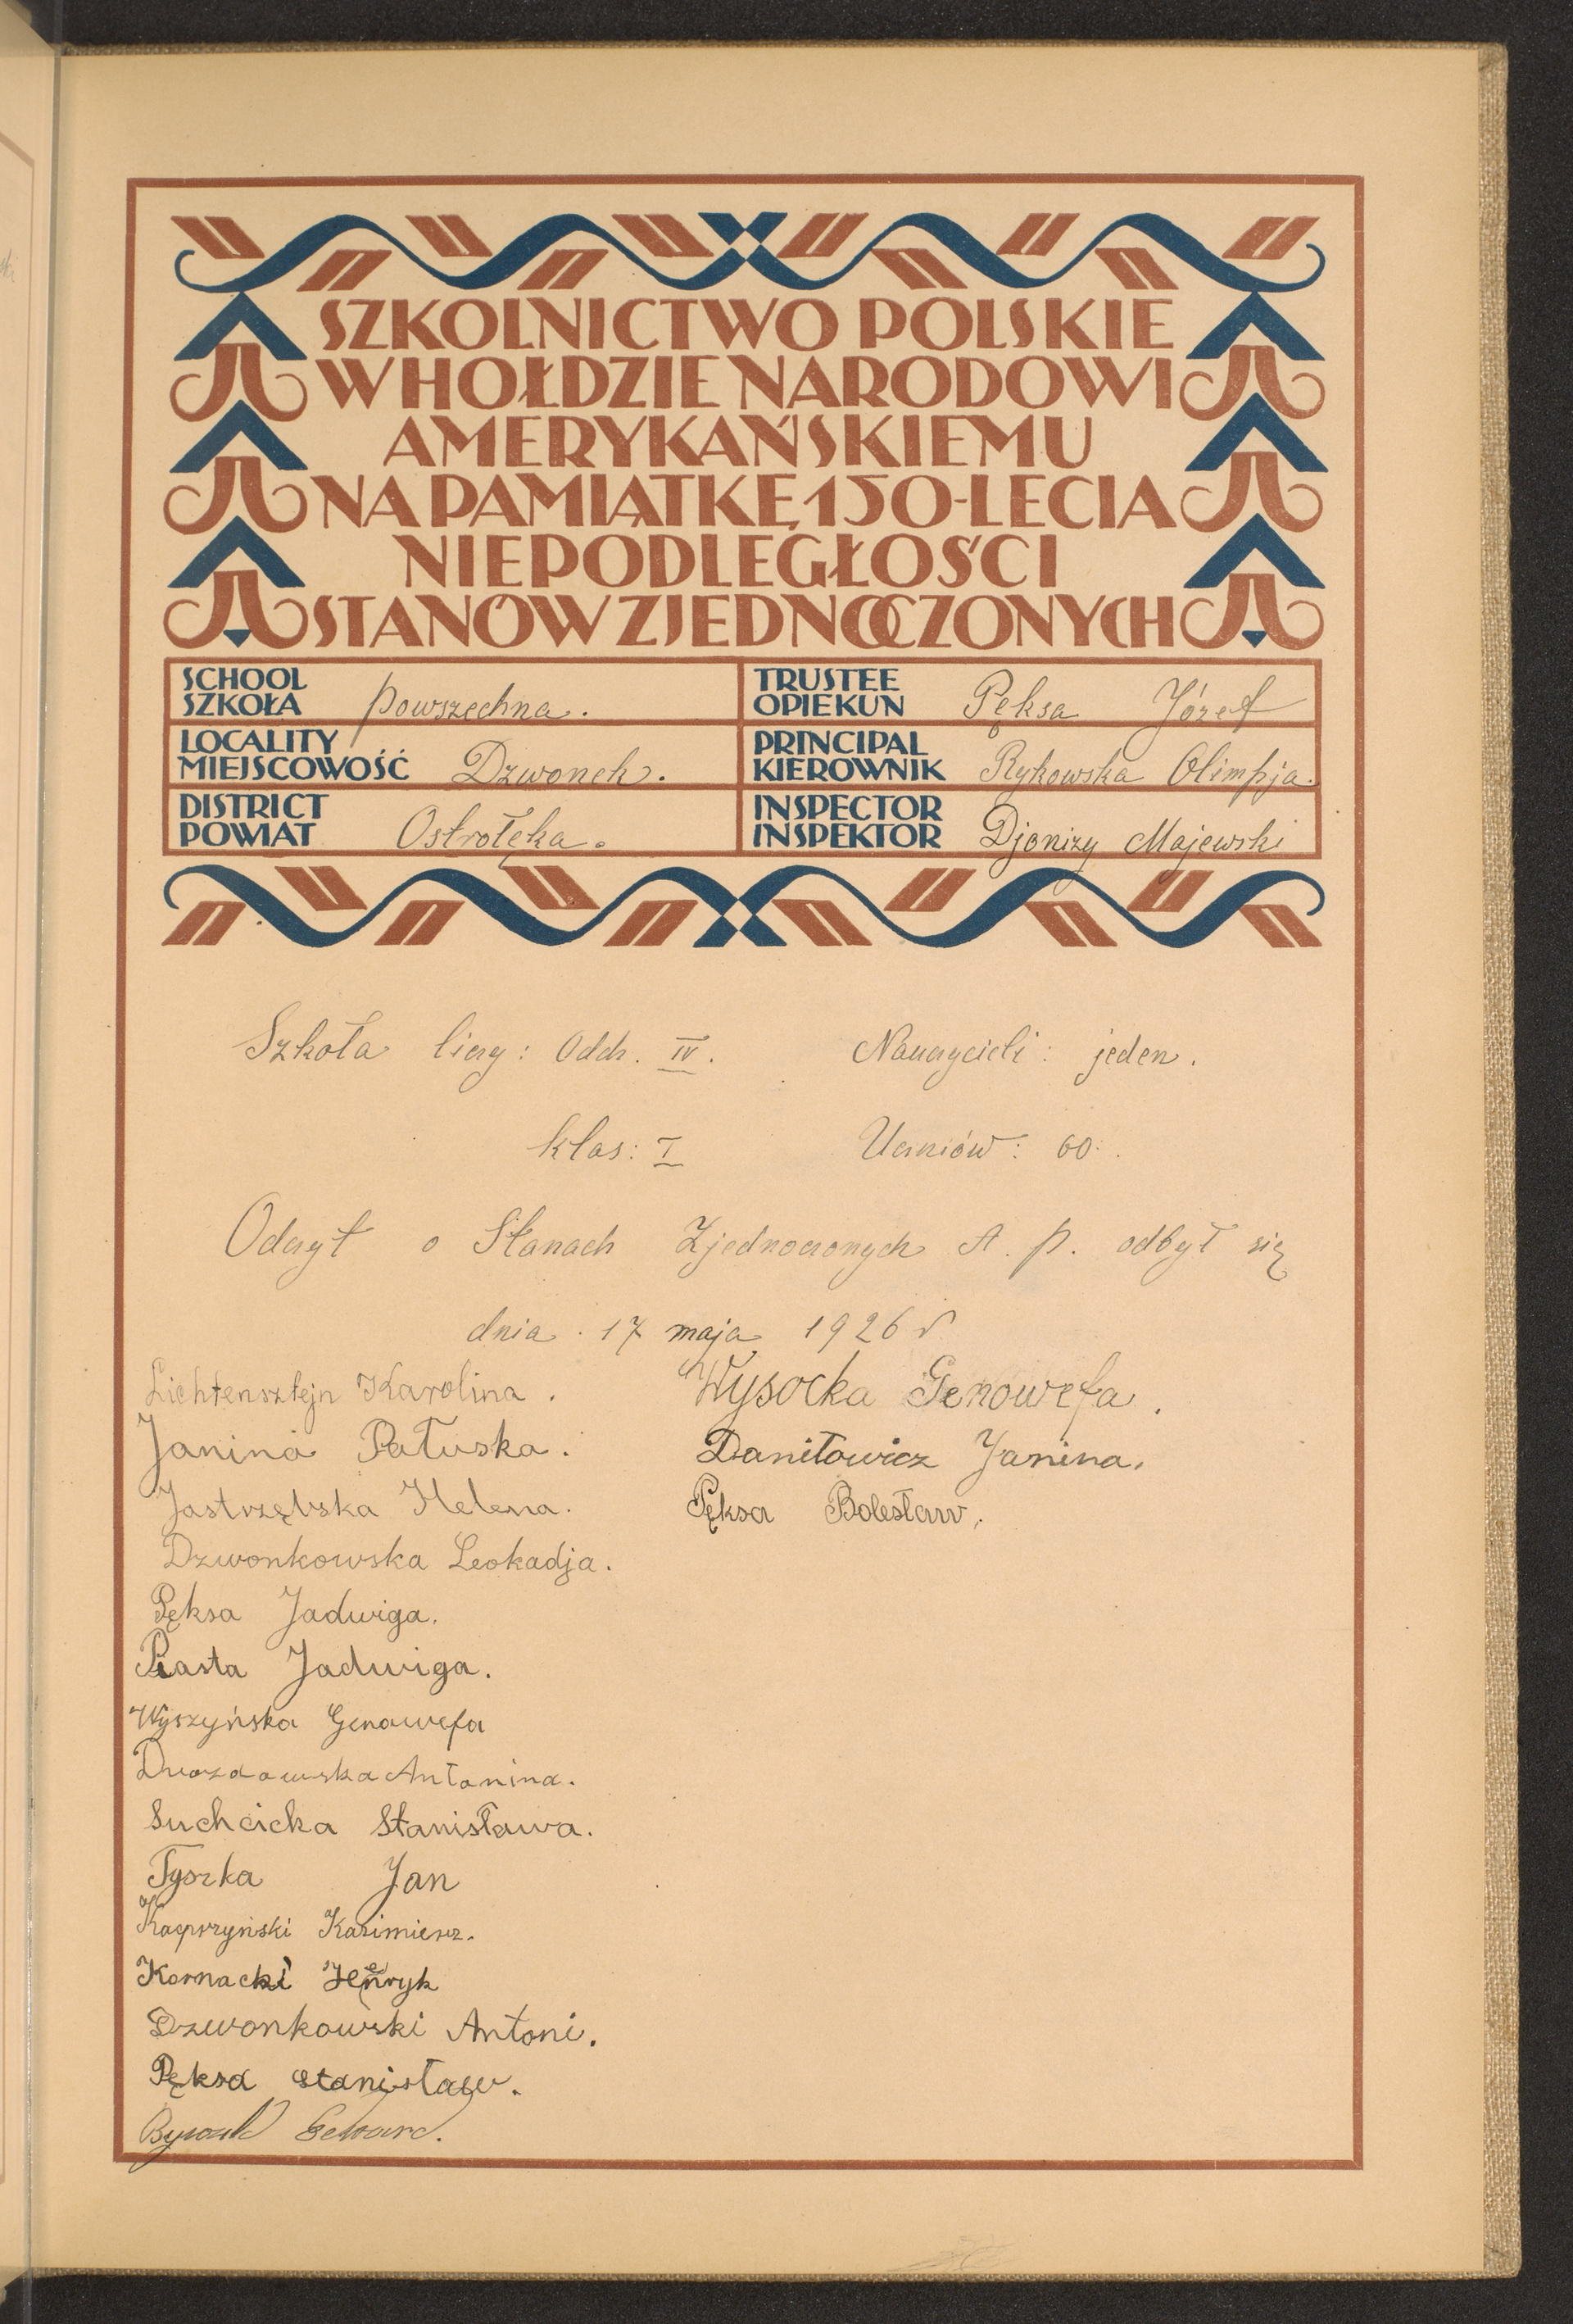 SZKOLNICTWO POLSKIE
W HOŁDZIE NARODOWI
AMERYKAŃSKIEMU
NA PAMIĄTKĘ 150-LECIA
NIEPODLEGŁOŚCI
STANÓW ZJEDNOCZONYCH
SCHOOL
SZKOŁA powszechna.
TRUSTEE
OPIEKUN Pęksa Józef
LOCALITY
MIEJSCOWOŚĆ Dzwonek.
PRINCIPAL
KIEROWNIK Rykowska Olimpja.
DISTRICT
POWIAT Ostrołęka.
INSPECTOR
INSPEKTOR Djonizy Majewski
Szkoła liczy: Oddz. IV. Nauczycieli: jeden.
klas: I Uczniów: 60.
Odczyt o Stanach Zjednoczonych A. p. odbył się
dnia 17 maja 1926 r
Lichtensztejn Karolina.
Janina Pałuska.
Jastrzębska Helena.
Dzwonkowska Leokadja.
Pęksa Jadwiga.
Piasta Jadwiga.
Wyszyńska Genowefa
Antonina.
Suchcicka Stanisława.
Tyszka Jan
Kacprzyński Kazimierz.
Kornacki Henryk
Dzwonkowski Antoni.
Pęksa Stanisław.
Wysocka Genowefa.
Daniłowicz Janina.
Pęksa Bolesław.